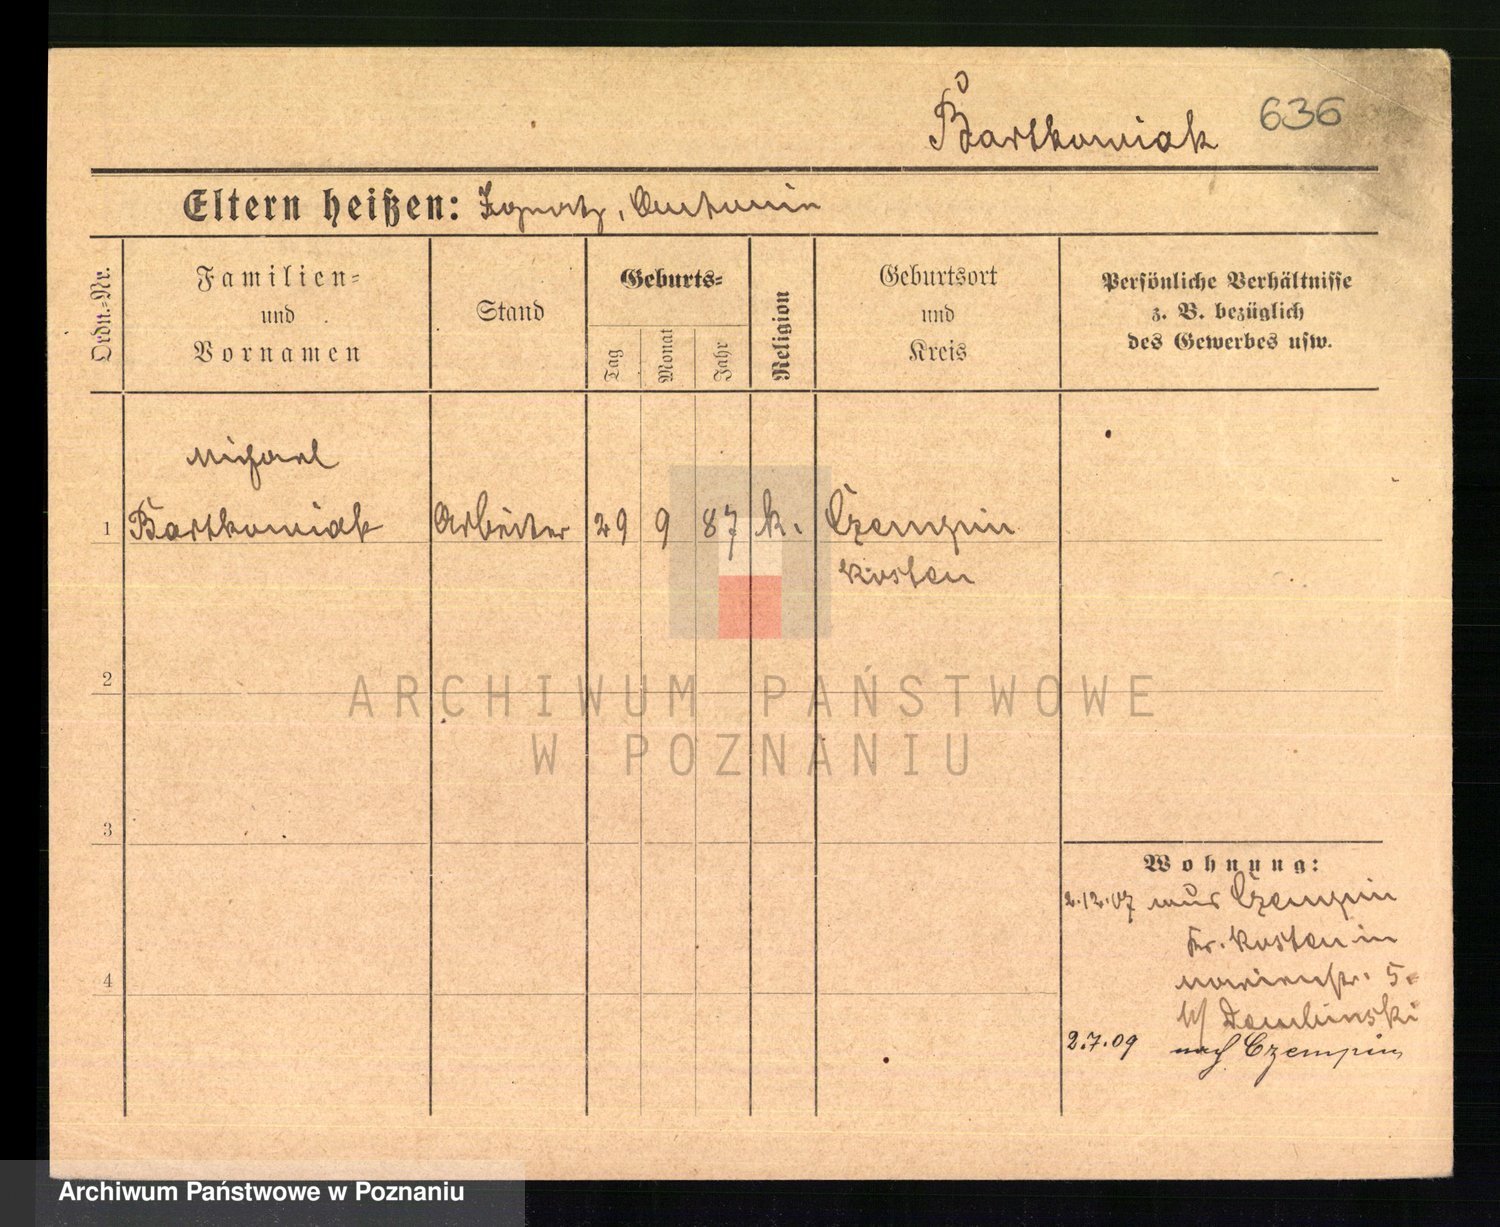 Bartkowiak 636
Eltern heißen: Ignatz, Antonin
Ordn.-Nr.
Familien-
und
Vornamen
Stand
Geburts-
Tag
Monat
Jahr
Religion
Geburtsort
und
Kreis
Persönliche Verhältnisse
z. B. bezüglich
des Gewerbes usw.
Michael
1 Bartkowiak Arbeiter 29 9 87 k. Czempin
Kosten
2
ARCHIWUM PAŃSTWOWE
W POZNANIU
3
Wohnung:
2.12.07 aus Czempin
Kr. Kosten in
Marienstr. 5.
b/ Dembinski
4
2.7.09 nach Czempin
Archiwum Państwowe w Poznaniu